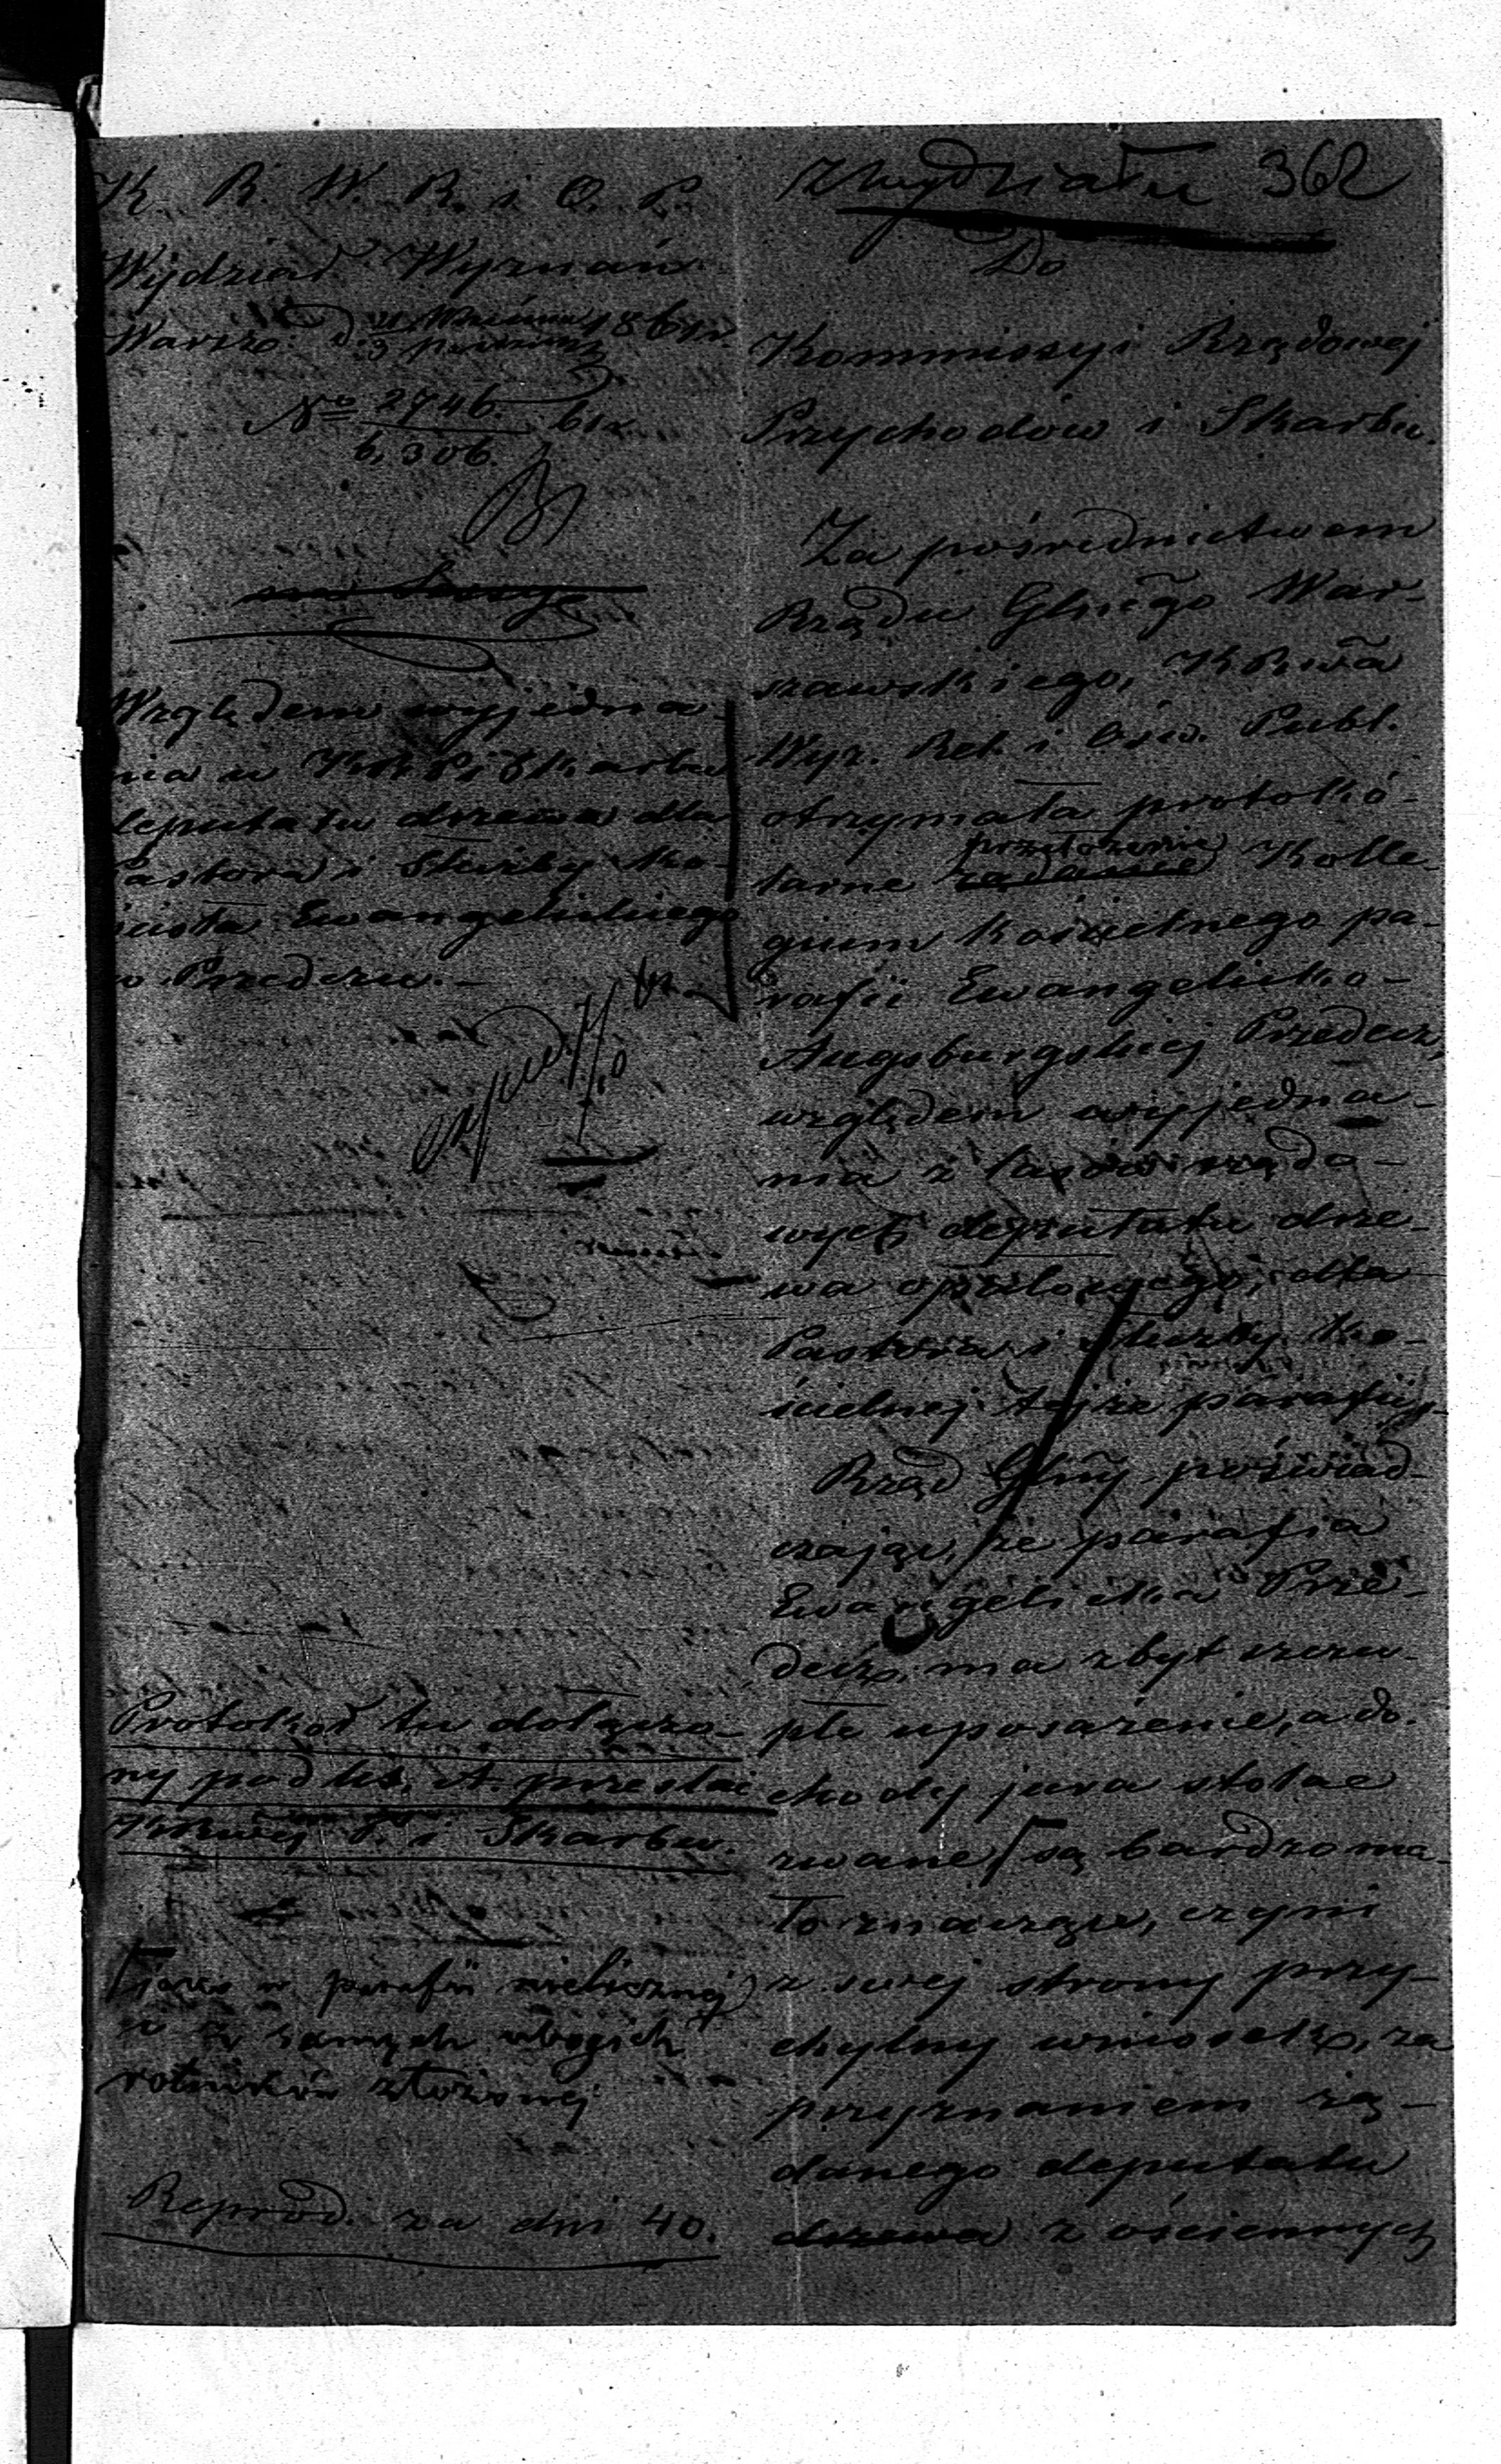 K. R. W. R. i O. P.
Wydział Wyznań
Warsz. d. 1861 r.
No 2746. 61 r.
6,306.
Względem wyjedna-
nia u KRPiSkarbu
deputatu drzewa dla
Pastora i Służby Ko-
ścioła Ewangelickiego
w Przedczu.-
Protokół tu dołączo-
ny pod lit. A. przesłać
KRwej P. i Skarbu.
jako w parafii nielicznej
i z samych ubogich
rolników złożonej
Reprod. za dni 40.
Z Wydziału 362
Do
Kommissyi Rządowej
Przychodów i Skarbu.
Za pośrednictwem
Rządu Glnego War-
szawskiego, KRwa
Wyz. Rel. i Ośw. Publ.
otrzymała protokó-
przełożenie
larne żądanie Kolle-
gium kościelnego pa-
rafii Ewangelicko-
Augsburgskiej Przedecz,
względem wyjedna-
nia z lasów rządo-
wych deputatu drze-
wa opałowego, dla
Pastora i służby ko-
ścielnej tejże parafii.-
Rząd Glny, poświad-
czając, że parafia
Ewangelicka Prze-
decz, ma zbyt szczu-
płe uposażenie, a do-
chody jura stolae
zwane, są bardzo ma-
ło znaczące, czyni
z swej strony przy-
chylny wniosek, za
przyznaniem żą-
danego deputatu
drzewa z ościennych